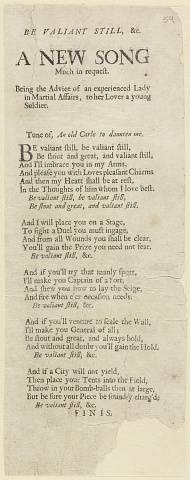 BE VALIANT STILL, &c.
A NEW SONG
Much in request.
Being the Advice of an experienced Lady
in Martial Affairs, to her Lover a young
Soldier.
Tune of, An old Carle to daunten me.
BE valiant still, be valiant still,
Be stout and great, and valiant still,
And I'll imbrace you in my Arms,
And please you with Loves pleasant Charms
And then my Heart shall be at rest,
In the Thoughts of him whom I love best.
Be valiant still, be valiant still,
Be stout and great, and valiant still.
And I will place you on a Stage,
To fight a Duel you must ingage,
And from all Wounds you shall be clear,
You'll gain the Prize you need not fear.
Be valiant still, &c.
And if you'll try that manly sport,
I'll make you Captain of a Fort,
And shew you how to lay the Seige,
And fire when e'er occasion needs.
Be valiant still, &c.
And if you'll venture to scale the Wall,
I'll make you General of all;
Be stout and great, and always bold,
And without all doubt you'll gain the Hold.
Be valiant still, &c.
And if a City will not yield,
Then place your Tents into the Field,
Throw in your Bomb-balls then at large,
But be sure your Piece be soundly charg'd;
Be valiant still, &c.
FINIS.